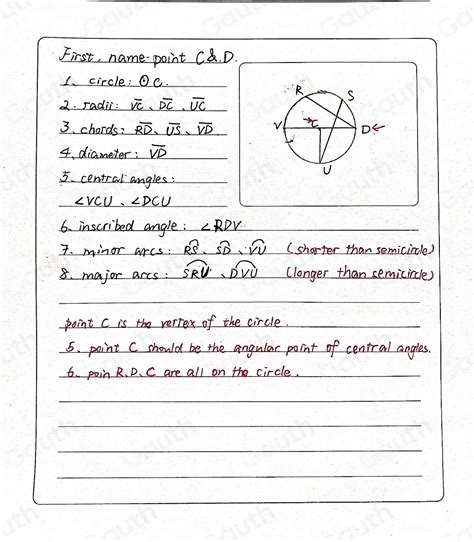 First, name-point C&D.
1. circle: ⊙C.
2. radii: V̅C̅、D̅C̅、U̅C̅
3. chords: R̅D̅、U̅S̅、V̅D̅
4. diameter: V̅D̅
5. central angles:
∠VCU、∠DCU
R
S
V
C
D
U
6. inscribed angle: ∠RDV
7. minor arcs: RS、SD、VU (shorter than semicircle)
8. major arcs: SRU、DVU (longer than semicircle)
point C is the vertex of the circle.
5. point C should be the angular point of central angles.
6. poin R.D.C are all on the circle.
Gauth